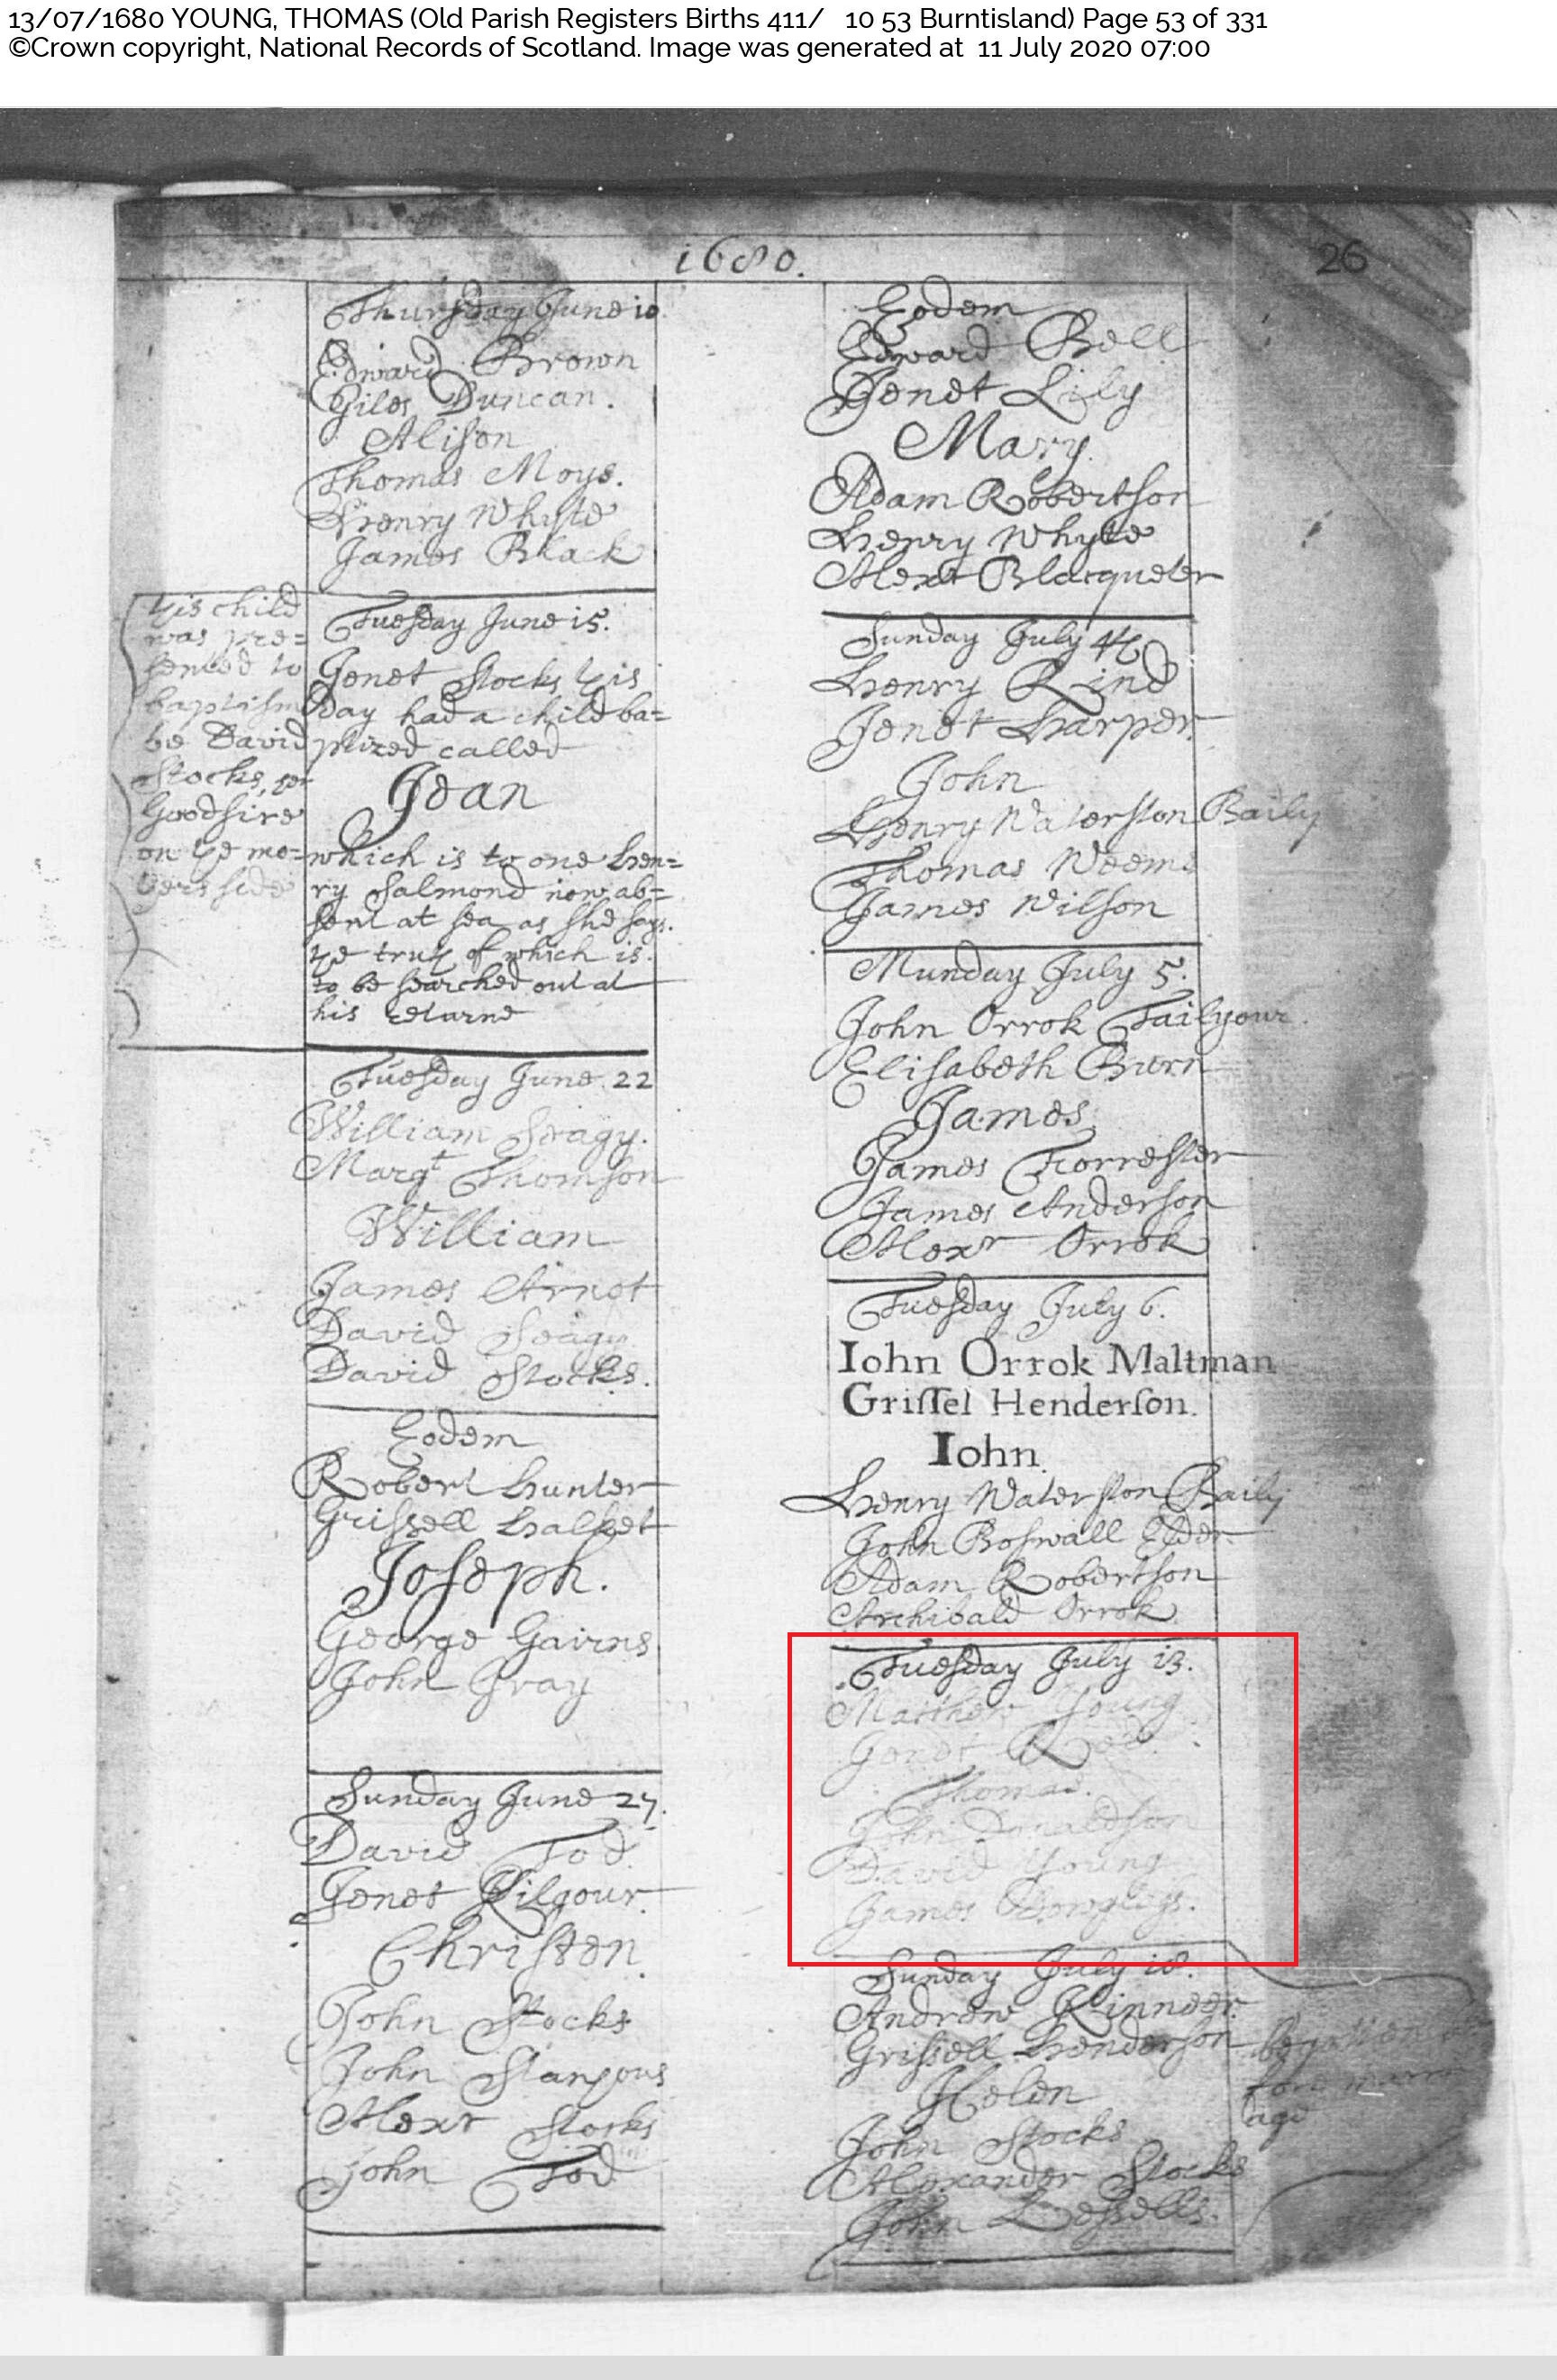 13/07/1680 YOUNG, THOMAS (Old Parish Registers Births 411/ 10 53 Burntisland) Page 53 of 331
©Crown copyright, National Records of Scotland. Image was generated at 11 July 2020 07:00
1680.
26
Thursday June 10
Edward Brown
Giles Duncan.
Alison
Thomas Moye.
Henry Whyte
James Black
yis child
was pre=
sented to
baptism
be David
Stocks,
Goodsire
on ye mo=
yers side
Tuesday June 15.
Jenet Stocks yis
day had a child ba=
ptized called
Jean
which is to one Hen=
ry Salmond now ab=
sent at sea as she says.
ye truy of which is
to be searched out at
his returne
Tuesday June. 22
William Seagy.
Margt Thomson
William
James Arnot
David Seagy
David Stocks.
Eodem
Robert Hunter
Grissell Halket
Joseph.
George Gairns
John Gray
Sunday June 27.
David Tod
Jenet Kilgour.
Christen
John Stocks
John
Alexr Stocks
John Tod
Eodem
Edward Bell
Jenet Lily
Mary.
Adam Robertson
Henry Whyte
Alexr Blacqueter
Sunday July 4
Henry Kind
Jenet Harper.
John
Henry Waterston Baily
Thomas Weems
James Wilson
Munday July 5.
John Orrok Tailyour.
Elisabeth Burn
James
James Forrester
James Anderson
Alexr Orrok
Tuesday July 6.
Iohn Orrok Maltman
Griſſel Henderſon.
Iohn.
Henry Waterston Baily
John Boswall Elder.
Adam Robertson
Archibald Orrok
Tuesday July 13.
Matthew Young
Jenet
Thomas.
John Donaldson
David Young
James Dowglass.
Sunday July 18.
Andrew Kinneer.
Grissell Henderson
Helen
John Stocks
Alexander Stocks
John Lessells.